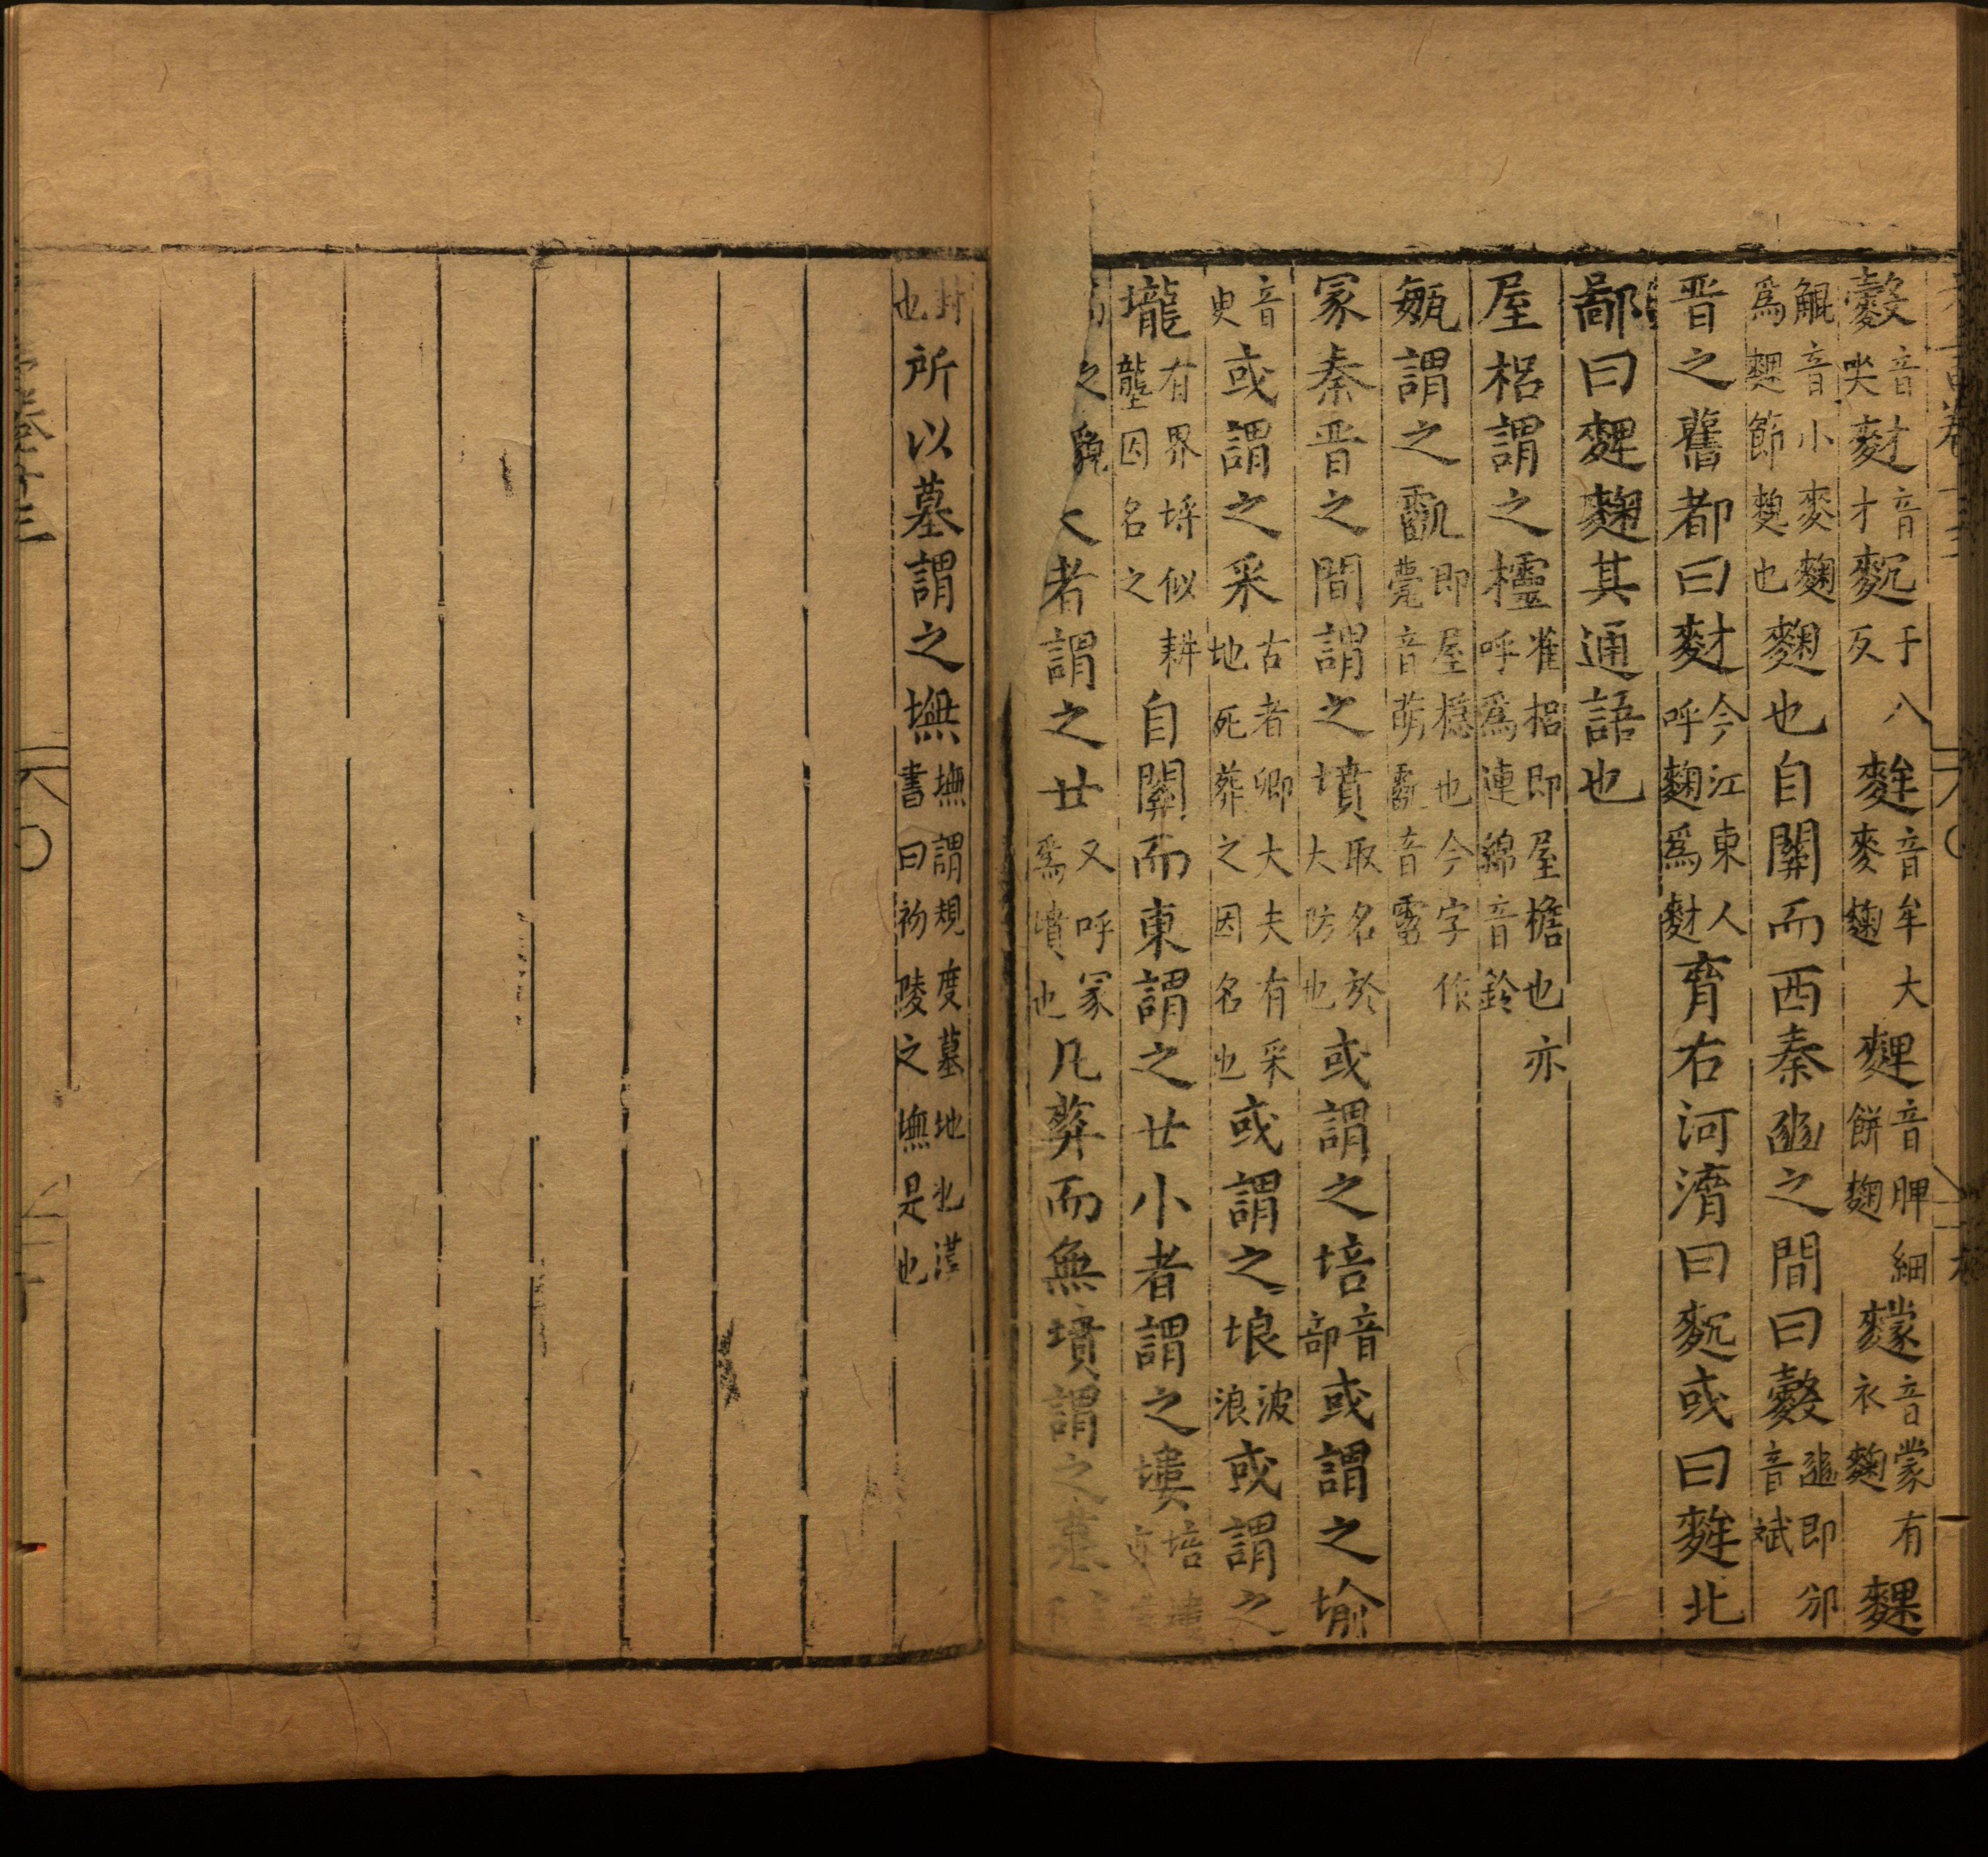 䴷音哭䴭音才𪌘于八反麰音牟大麥麴䴽音脾細餅麴䵆音蒙有衣麴䴹
䚠音小麥麴爲䴹節䴷也麴也自關而西秦豳之間曰䴷豳即邠音斌
晋之舊都曰䴭今江東人呼麴爲䴭齊右河濟曰𪌘或曰麰北
鄙曰䴽麴其通語也
屋梠謂之欞雀梠即屋檐也亦呼爲連綿音鈴
甂謂之㽇即屋檼也今字作甍音萌㽇音霤
冢秦晋之間謂之墳取名於大防也或謂之培音部或謂之堬
音臾或謂之采古者卿大夫有采地死葬之因名也或謂之埌波浪或謂之
壠有界埒似耕壟因名之自關而東謂之丠小者謂之塿培
之貌大者謂之丠又呼冢爲墳也凡葬而無墳謂之墓
封也所以墓謂之墲墲謂規度墓地也漢書曰初陵之墲是也